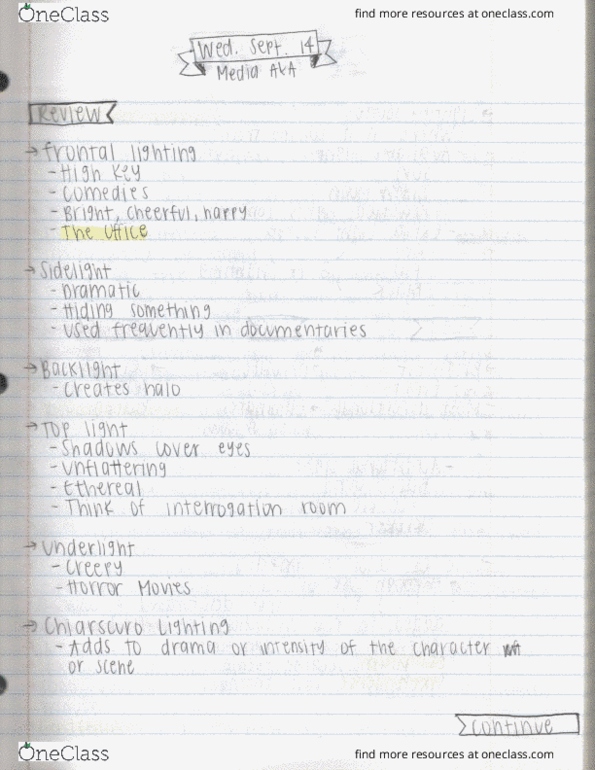 OneClass
find more resources at oneclass.com
Wed. Sept. 14
Media A&A
Review
→ frontal lighting
- High Key
- Comedies
- Bright, cheerful, happy
- The Office
→ Sidelight
- Dramatic
- Hiding something
- Used frequently in documentaries
→ Backlight
- Creates halo
→ Top light
- Shadows cover eyes
- Unflattering
- Ethereal
- Think of interrogation room
→ Underlight
- Creepy
- Horror Movies
→ Chiarscuro Lighting
- Adds to drama or intensity of the character
or scene
continue
OneClass
find more resources at oneclass.com